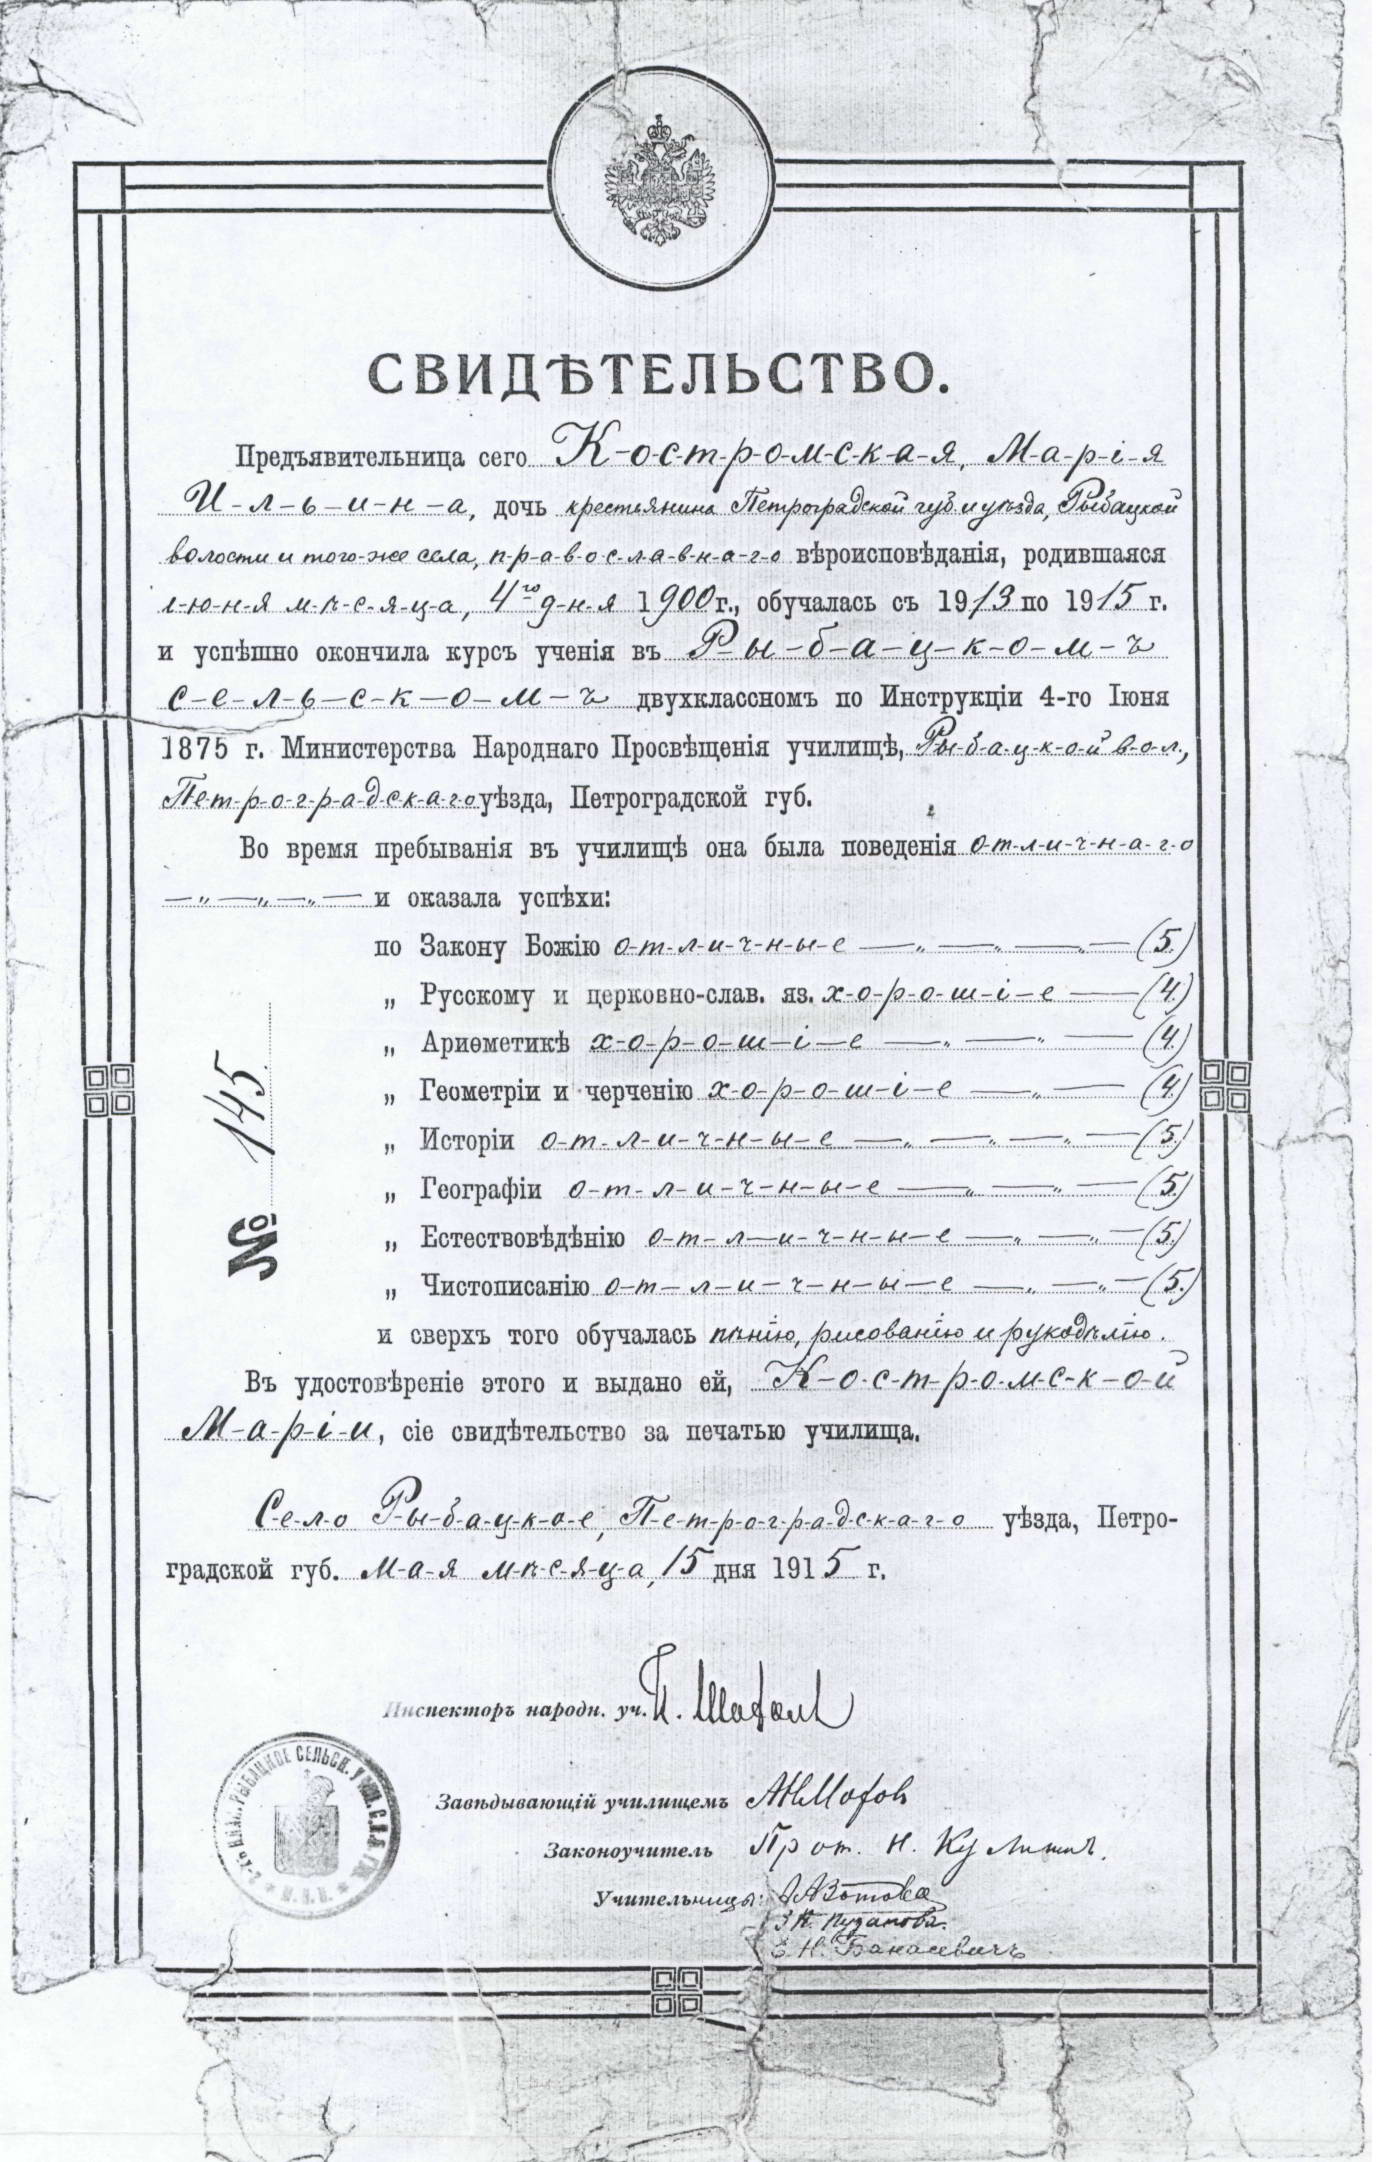 СВИДѢТЕЛЬСТВО.
Предъявительница сего К-о-с-т-р-о-м-с-к-а-я, М-а-р-і-я
И-л-ь-и-н-а, дочь крестьянина Петроградской губ. и уѣзда, Рыбацкой
волости и того-же села, п-р-а-в-о-с-л-а-в-н-а-г-о вѣроисповѣданія, родившаяся
і-ю-н-я м-ѣ-с-я-ц-а, 4го д-н-я 1900 г., обучалась съ 1913 по 1915 г.
и успѣшно окончила курсъ ученія въ Р-ы-б-а-ц-к-о-м-ъ
с-е-л-ь-с-к-о-м-ъ двухклассномъ по Инструкціи 4-го Іюня
1875 г. Министерства Народнаго Просвѣщенія училищѣ, Ры-б-а-ц-к-о-й в-о-л.,
Пет-р-о-г-р-а-д-с-к-а-г-о уѣзда, Петроградской губ.
Во время пребыванія въ училищѣ она была поведенія о-т-л-и-ч-н-а-г-о
—„—„—„— и оказала успѣхи:
по Закону Божію о-т-л-и-ч-н-ы-е —„—„—„— (5.)
„ Русскому и церковно-слав. яз. х-о-р-о-ш-і-е — (4.)
„ Ариѳметикѣ х-о-р-о-ш-і-е —„—„— (4.)
„ Геометріи и черченію х-о-р-о-ш-і-е —„— (4.)
„ Исторіи о-т-л-и-ч-н-ы-е —„—„—„— (5.)
„ Географіи о-т-л-и-ч-н-ы-е —„—„— (5.)
„ Естествовѣдѣнію о-т-л-и-ч-н-ы-е —„—„— (5.)
„ Чистописанію о-т-л-и-ч-н-ы-е —„—„— (5.)
№ 145.
и сверхъ того обучалась пѣнію, рисованію и рукодѣлію.
Въ удостовѣреніе этого и выдано ей, К-о-с-т-р-о-м-с-к-о-й
М-а-р-і-и, сіе свидѣтельство за печатью училища.
С-е-л-о Р-ы-б-а-ц-к-о-е, П-е-т-р-о-г-р-а-д-с-к-а-г-о уѣзда, Петро-
градской губ. м-а-я м-ѣ-с-я-ц-а, 15 дня 1915 г.
Инспекторъ народн. уч.
Завѣдывающій училищемъ
Законоучитель Прот. Н.
Учительницы: А Зотова
З. Н. Пузанова.
Е. Н. Банасевичъ
РЫБАЦКОЕ СЕЛЬСК. УЧИЛ.